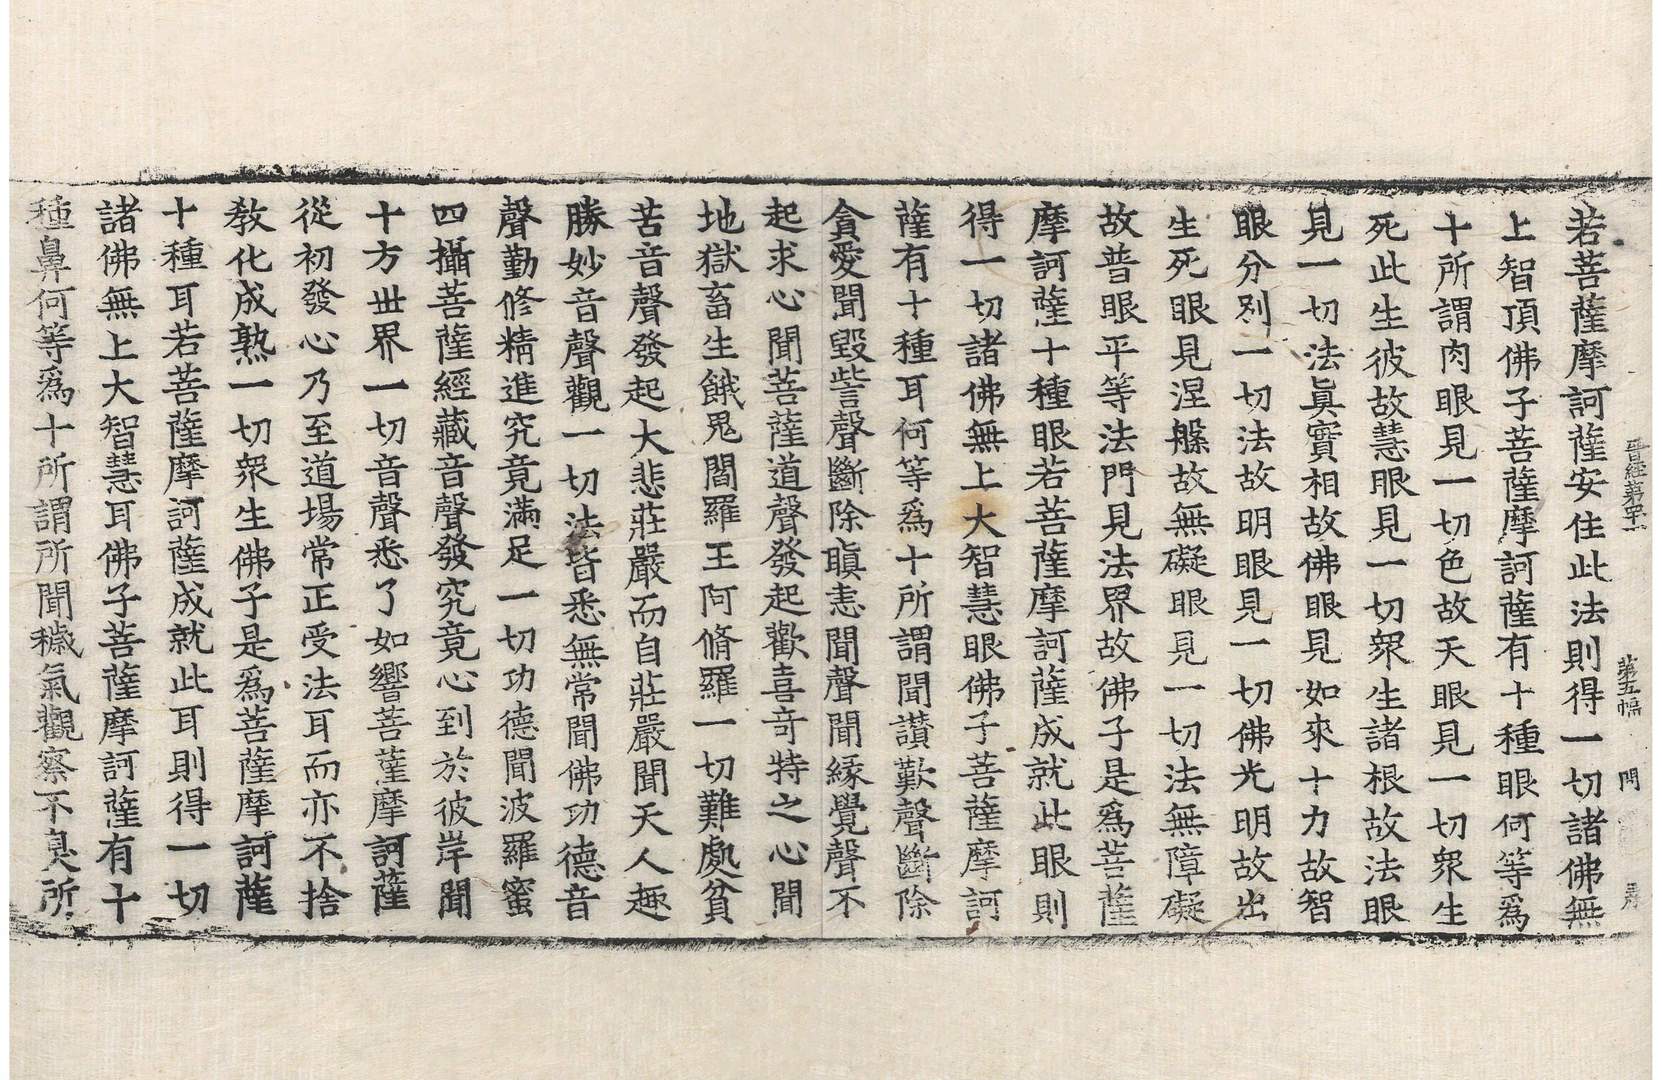 晉經第四十一 第五幅 門
若菩薩摩訶薩安住此法則得一切諸佛無
上智頂佛子菩薩摩訶薩有十種眼何等爲
十所謂肉眼見一切色故天眼見一切衆生
死此生彼故慧眼見一切衆生諸根故法眼
見一切法眞實相故佛眼見如來十力故智
眼分別一切法故明眼見一切佛光明故出
生死眼見涅槃故無礙眼見一切法無障礙
故普眼平等法門見法界故佛子是爲菩薩
摩訶薩十種眼若菩薩摩訶薩成就此眼則
得一切諸佛無上大智慧眼佛子菩薩摩訶
薩有十種耳何等爲十所謂聞讃歎聲斷除
貪愛聞毀訾聲斷除瞋恚聞聲聞緣覺聲不
起求心聞菩薩道聲發起歡喜奇特之心聞
地獄畜生餓鬼閻羅王阿脩羅一切難處貧
苦音聲發起大悲莊嚴而自莊嚴聞天人趣
勝妙音聲觀一切法皆悉無常聞佛功德音
聲勤修精進究竟滿足一切功德聞波羅蜜
四攝菩薩經藏音聲發究竟心到於彼岸聞
十方世界一切音聲悉了如響菩薩摩訶薩
從初發心乃至道場常正受法耳而亦不捨
教化成熟一切衆生佛子是爲菩薩摩訶薩
十種耳若菩薩摩訶薩成就此耳則得一切
諸佛無上大智慧耳佛子菩薩摩訶薩有十
種鼻何等爲十所謂所聞穢氣觀察不臭所